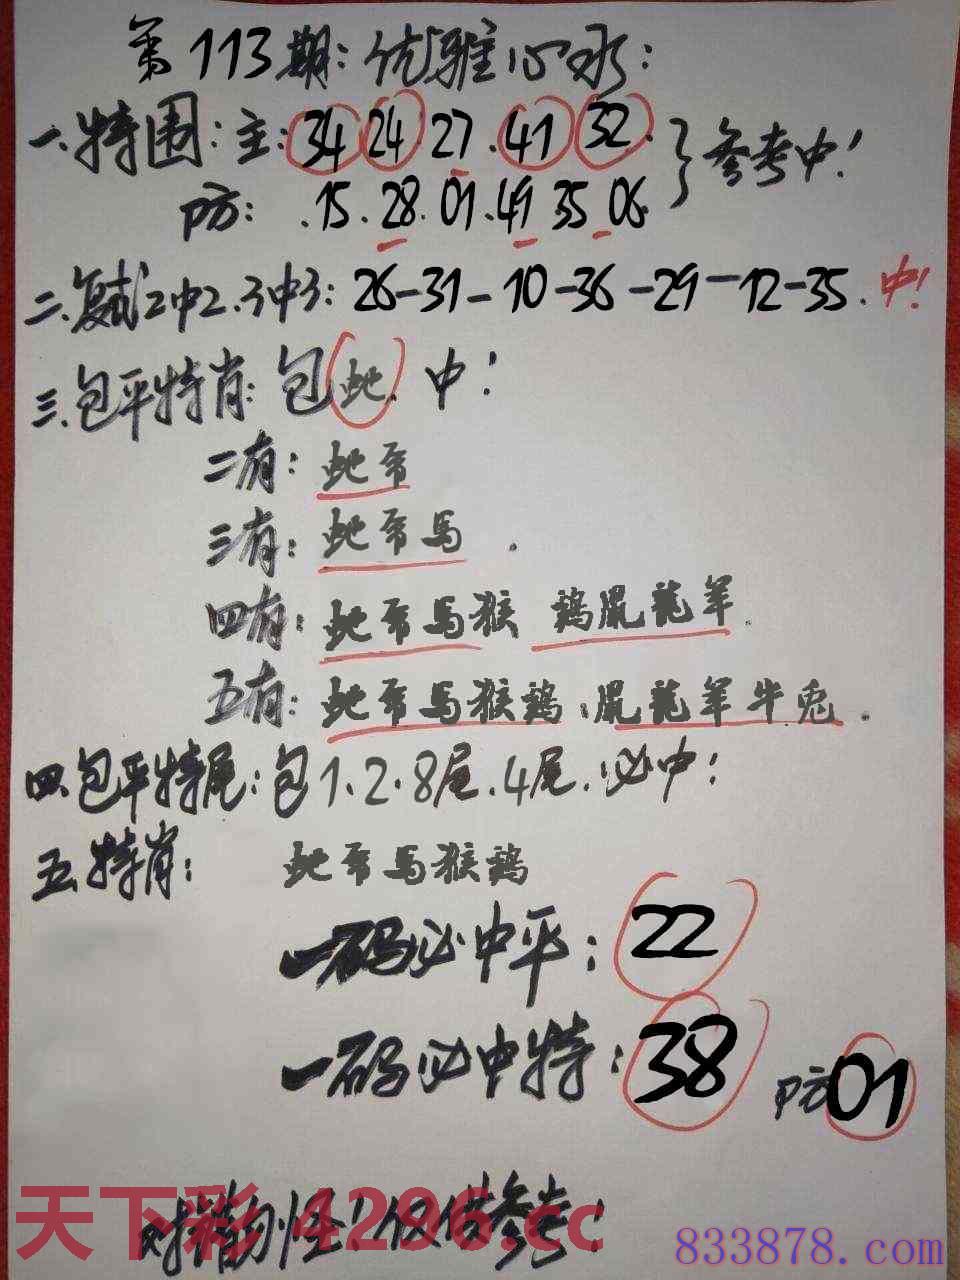 第113期：优雅心水：
一.特围：主：34 24.27.41 32.
防：.15.28.01.49 35 06.
参考中！
二.复试2中2.3中3：26-31-10-36-29-12-35.中！
三.包平特肖：包蛇.中！
二有：蛇帝
三有：蛇帝马.
四有：蛇帝马猴 鸡鼠龍羊.
五有：蛇帝马猴鸡、鼠龍羊牛兎.
四.包平特尾：包1.2.8尾.4尾.必中！
五.特肖：蛇帝马猴鸡
一码必中平：22
一码必中特：38 防01
对错勿怪！仅供参考！
天下彩 4296.cc
833878.com